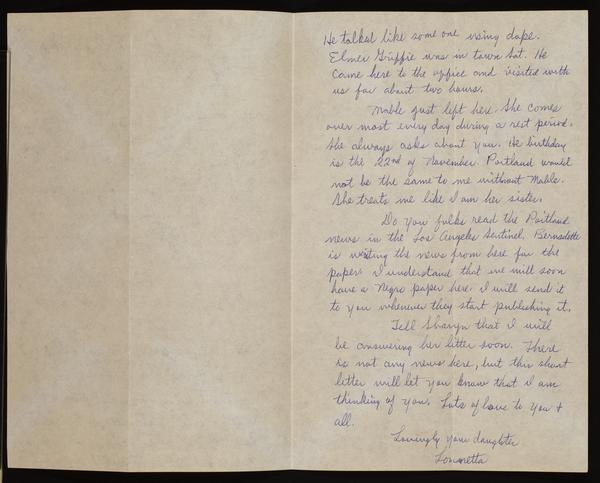 He talked like some one using dope.
Elmer Griffie was in town Sat. He
came here to the office and visited with
us for about two hours.
Mable just left here. She comes
over most every day during a rest period.
She always asks about you. He birthday
is the 22nd of November. Portland would
not be the same to me without Mable.
She treats me like I am her sister.
Do you folks read the Portland
news in the Los Angeles Sentinel. Bernadette
is writing the news from here for the
paper. I understand that we will soon
have a Negro paper here. I will send it
to you whenever they start publishing it.
Tell Sharyn that I will
be answering her letter soon. There
is not any news here, but this short
letter will let you know that I am
thinking of you. Lots of love to you &
all.
Lovingly your daughter